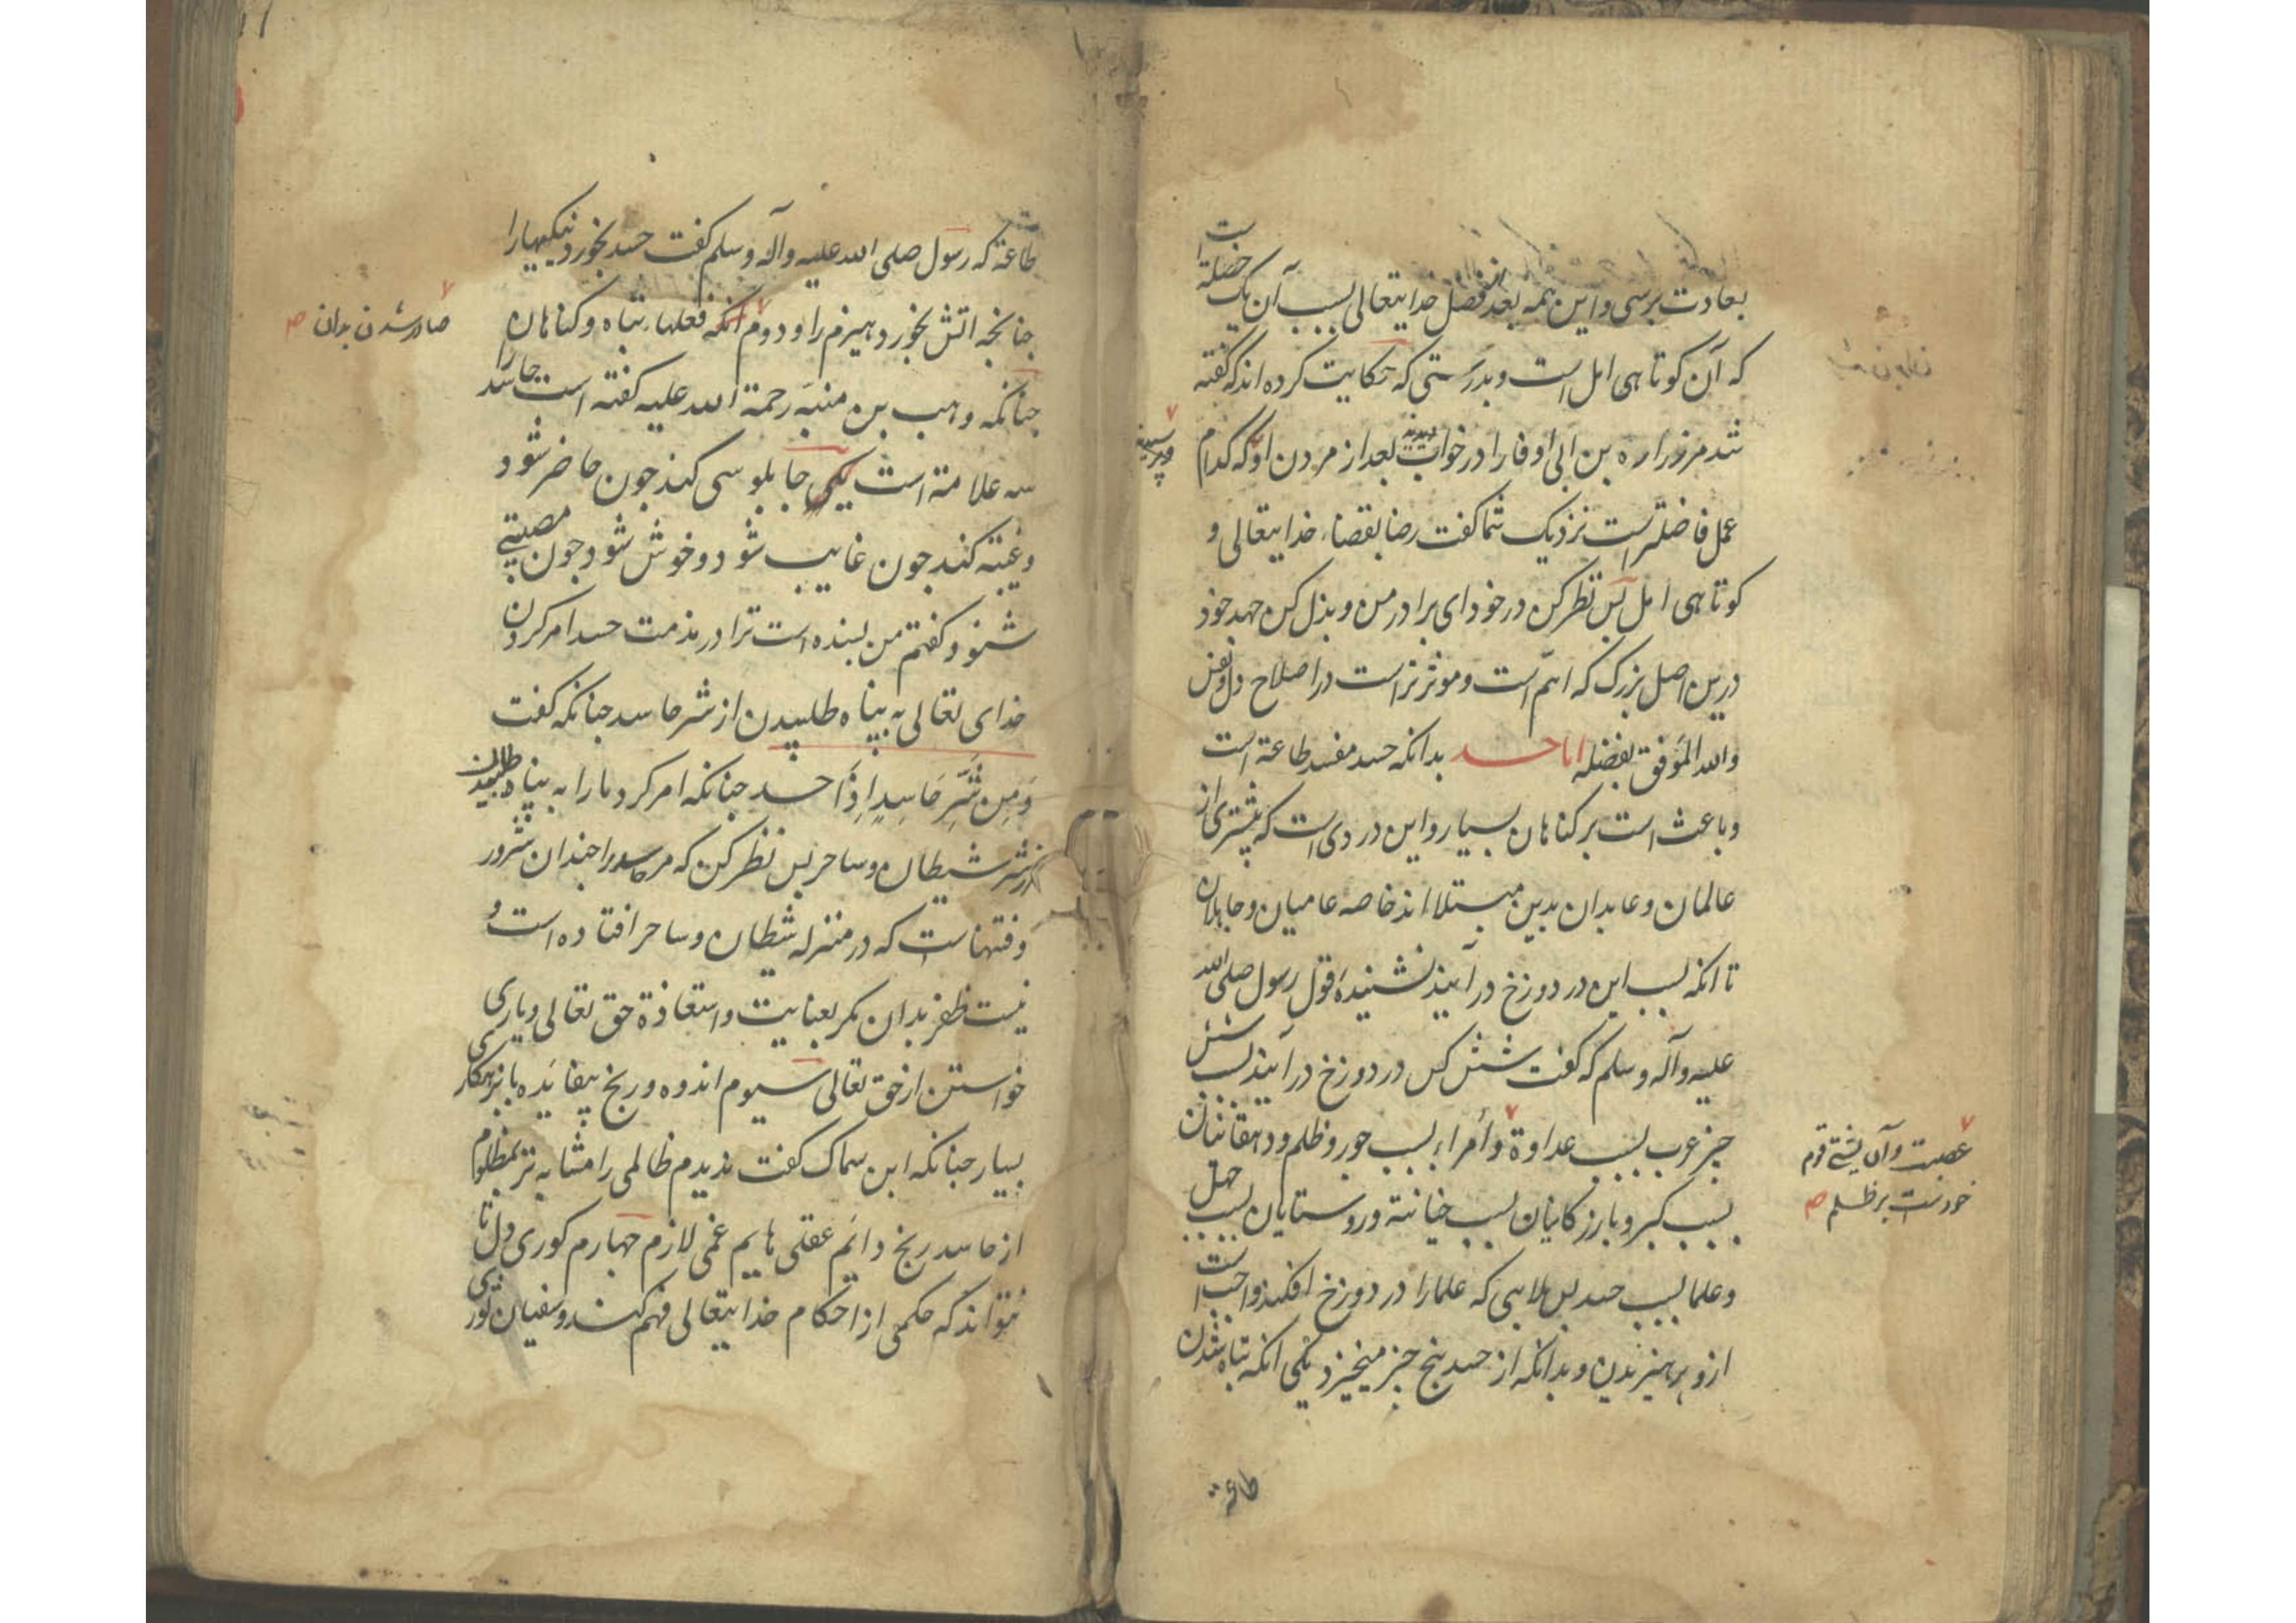 بعادت برسی و این همه بعد فضل خدایتعالی بسبب آن یک خصلة است
که آن کوتاهی امل است و بدرستی که حکایت کرده اند که گفته
شد مر زراره بن ابی اوفا را در خواب بعد از مردن او که کدام
عمل فاضلتر است نزدیک شما گفت رضا بقضاء خدایتعالی و
کوتاهی امل بس نظر کن در خود ای برادر من و بذل کن جهد خود
درین اصل بزرک که اهم است و موثرتر است در اصلاح دل و نفس
والله الموفق بفضله اما حسد بدانکه حسد مفسد طاعة است
و باعث است بر کناهان بسیار و این دردی است که بیشتری از
عالمان و عابدان بدین مبتلا اند خاصه عامیان و جاهلان
تا انکه بسبب این در دوزخ در آیند نشنیدهٔ قول رسول صلی الله
علیه وآله وسلم که گفت شش کس در دوزخ در آیند بسبب شش
چیز عرب بسبب عداوة و أمراء بسبب جور و ظلم و دهقانان
بسبب کبر و بازرکانان بسبب خیانة و روستایان بسبب جهل
و علما بسبب حسد بس بلاهی که علما را در دوزخ افکند واجب است
ازو پرهیزیدن و بدانکه از حسد پنج چیز میخیزد یکی انکه تباه شدن
طاعة
عصبیت و آن پشتی قوم
خود است بر ظلم
طاعة که رسول صلی الله علیه وآله وسلم گفت حسد بخورد نیکیها را
چنانچه اتش بخورد هیزم را و دوم انکه فعلها تباه و کناهان
صادر شدن بدان
چنانکه وهب بن منبه رحمة الله علیه کفته است حاسد را
سه علامة است یکی چابلوسی کند چون حاضر شود
و غیبة کند چون غایب شود و خوش شود چون مصیبتی
شنود و کفتم من بسنده است ترا در مذمت حسد امر کردن
خدای تعالی به پناه طلبیدن از شر حاسد چنانکه گفت
وَمِن شَرِّ حَاسِدٍ اِذَا حسد چنانکه امر کرد ما را به پناه طلبیدن
از شر شیطان و ساحر بس نظر کن که مر حاسد را چندان شرور
و فتنها ست که در منزله شیطان و ساحر افتاده است و
نیست ظفر بدان مکر بعنایت و استعاذة حق تعالی و یاری
خواستن از حق تعالی سیوم اندوه و رنج بیفائده با بزهکاری
بسیار چنانکه ابن سماک کفت ندیدم ظالمی را مشابه تر بمظلوم
از حاسد رنج دائم عقلی هایم غمی لازم چهارم کوری دل تا
نتواند که حکمی از احکام خدایتعالی فهم کند و سفیان ثوری